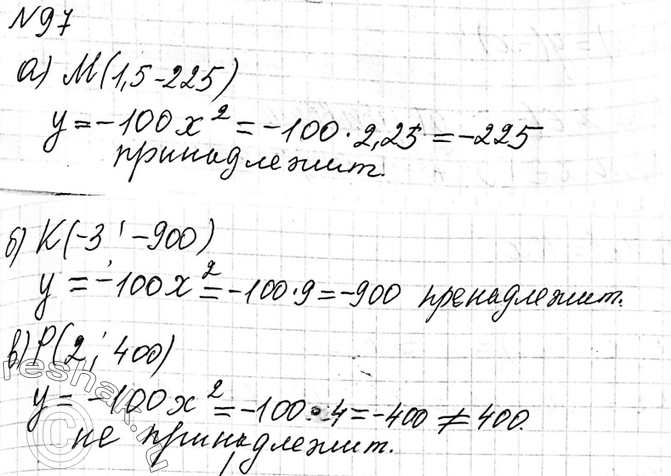 №97
а) М(1,5 -225)
y = -100x² = -100·2,25 = -225
принадлежит.
б) К(-3; -900)
y = -100x² = -100·9 = -900 пренадлежит.
в) Р(2; 400)
y = -100x² = -100·4 = -400 ≠ 400.
не принадлежит.
©reshak.ru